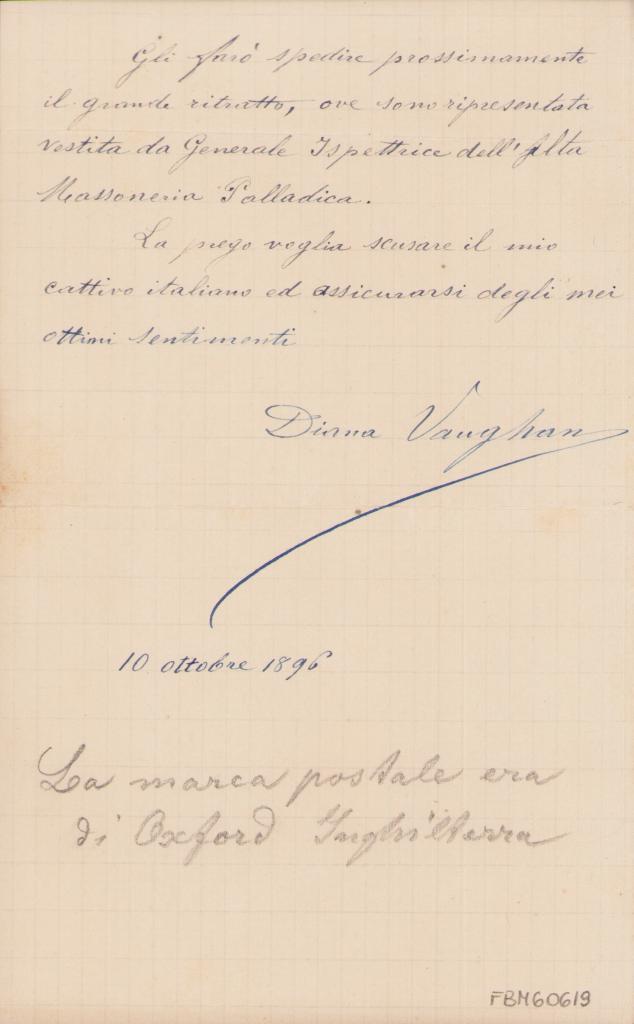 Gli farò spedire prossimamente
il grande ritratto, ove sono ripresentata
vestita da Generale Ispettrice dell'Alta
Massoneria Palladica.
La prego voglia scusare il mio
cattivo italiano ed assicurarsi degli mei
ottimi sentimenti
Diana Vaughan
10 ottobre 1896
La marca postale era
di Oxford Inghilterra
FBM60619